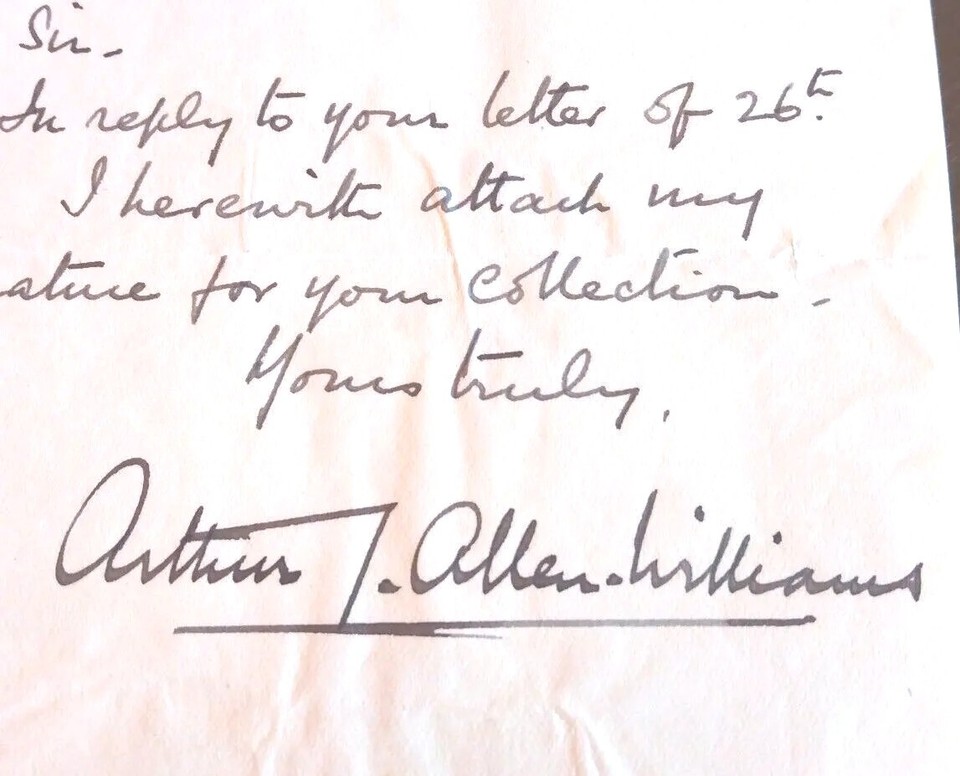 Sir -
In reply to your letter of 26th.
I herewith attach my
ature for your collection -
Yours truly,
Arthur J. Allen-Williams